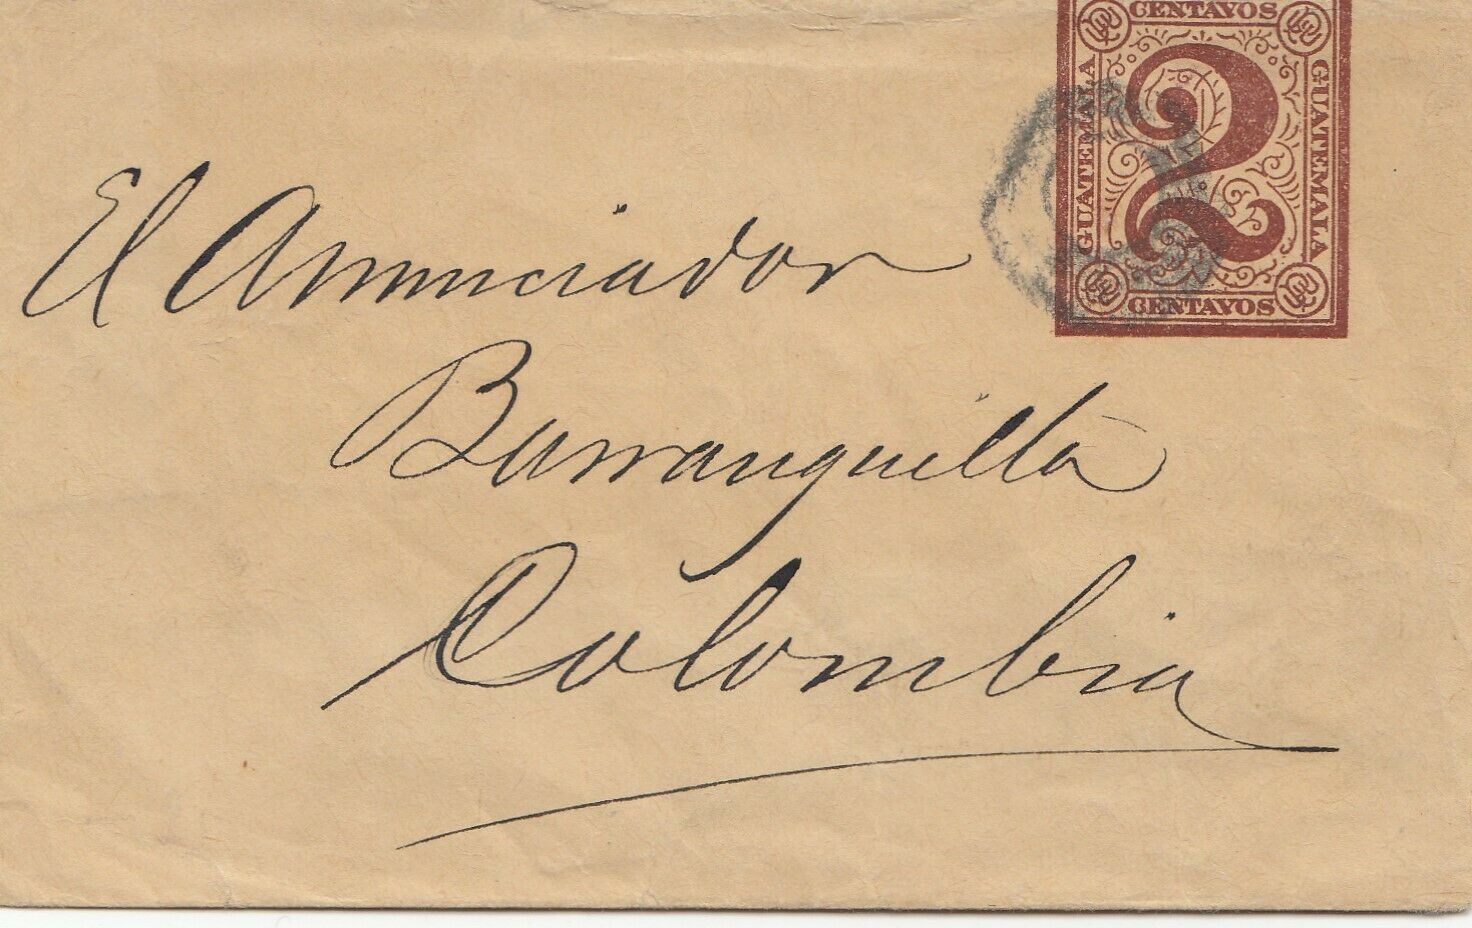 CENTAVOS
GUATEMALA
2
GUATEMALA
CENTAVOS
El Anunciador
Barranquilla
Colombia